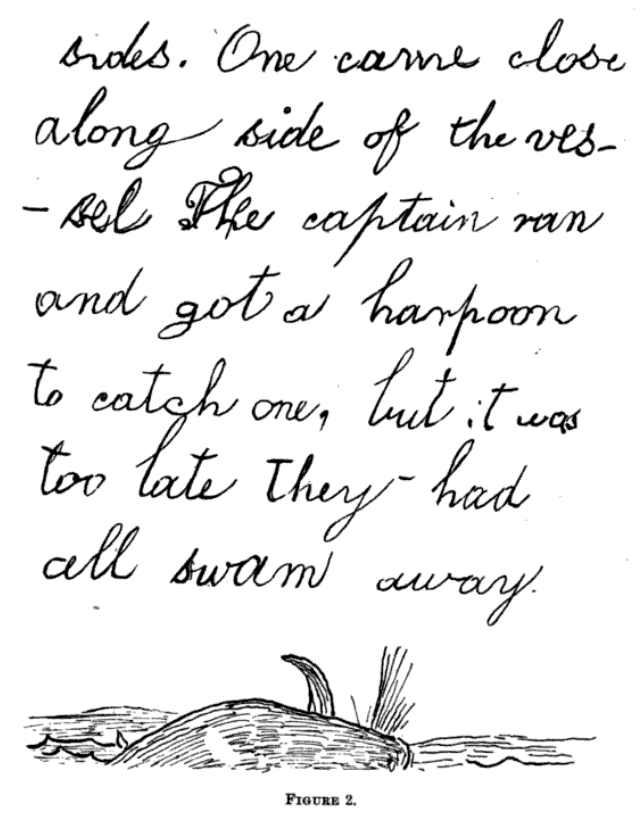 sides. One came close
along side of the ves-
- sel The captain ran
and got a harpoon
to catch one, but it was
too late They - had
all swam away.
FIGURE 2.